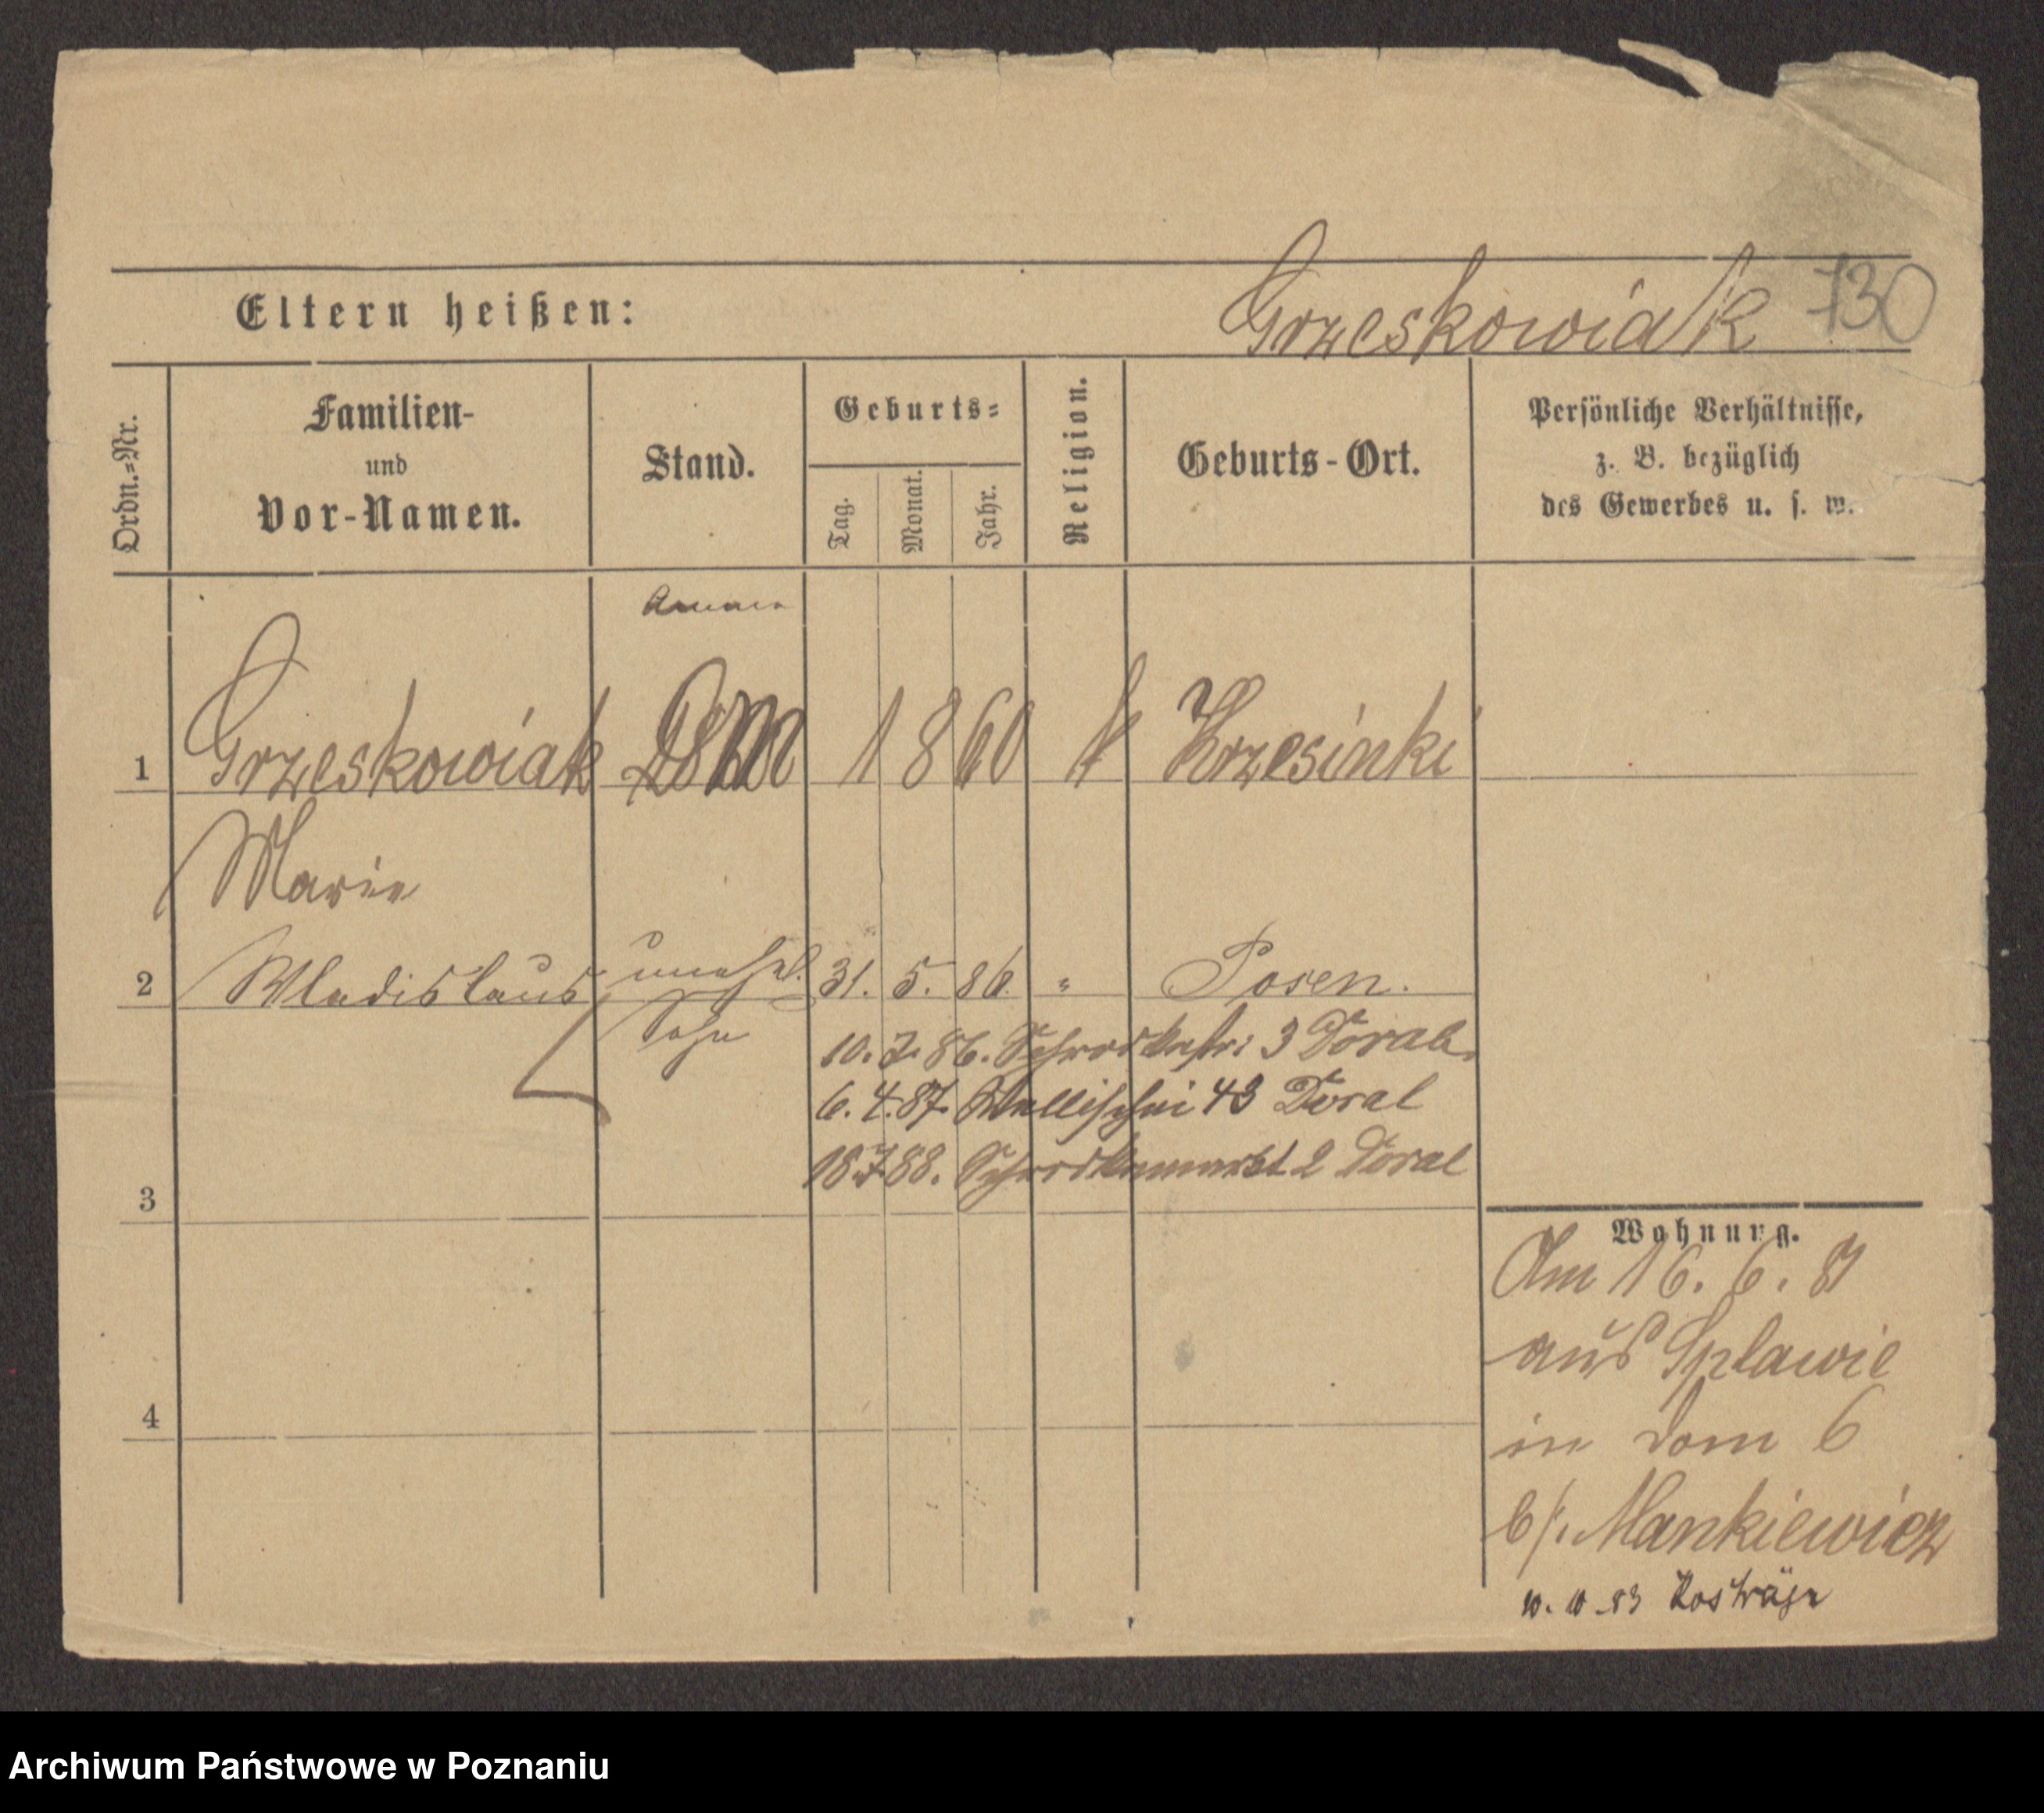 Eltern heißen:
Grzeskowiak 730
Ordn.=Nr.
Familien-
und
Vor-Namen.
Stand.
Geburts=
Tag.
Monat.
Jahr.
Religion.
Geburts-Ort.
Persönliche Verhältnisse,
z. B. bezüglich
des Gewerbes u. s. w.
1 Grzeskowiak 1860 k Krzesinki
Marie
2 Wladislaus unehel. 31. 5. 86. " Posen.
Sohn
10. 7. 86. Schrodkastr: 3
6. 4. 87. Wallischei 43
18.7.88. Schrodkamarkt 2
3
Wohnung.
Am 16. 6. 81
aus Splawie
in Dom 6
b/. Mankiewicz
4